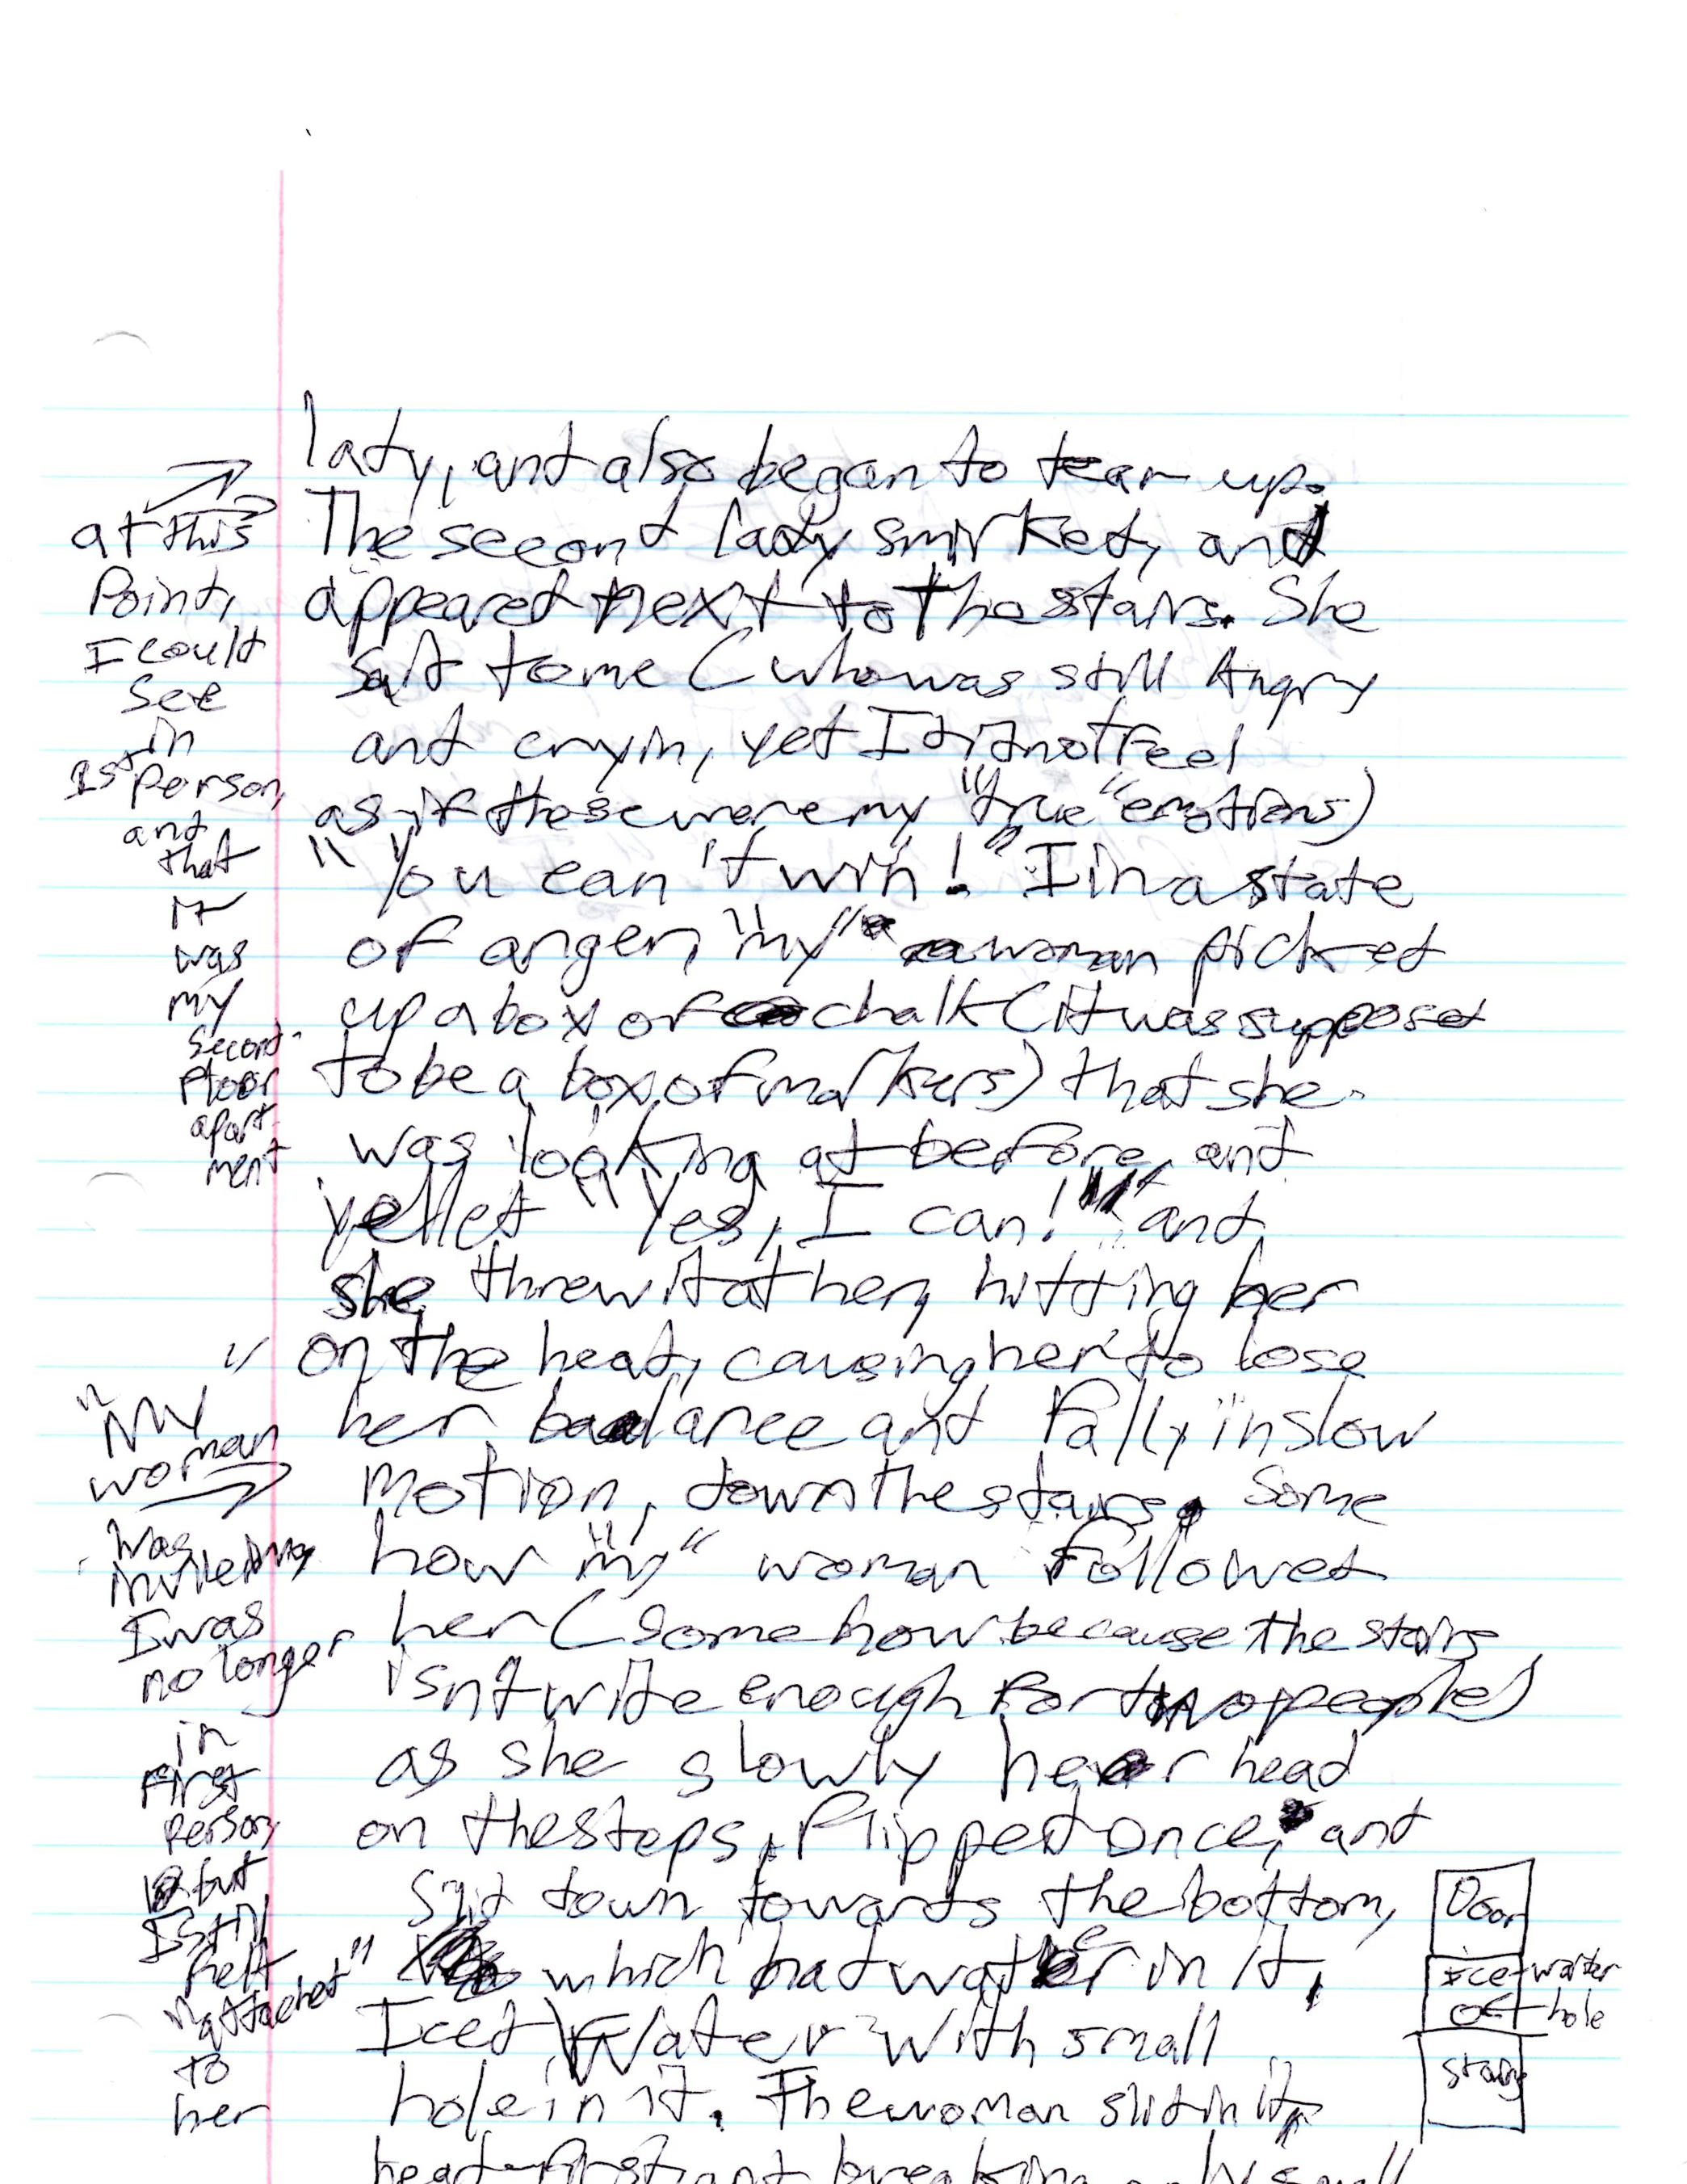 lady, and also began to tear up.
The second lady smirked, and
appeared next to the stairs. She
said to me (who was still Angry
and cryin, yet I did not feel
as if these were my "true" emotions)
"You can't win!" I in a state
of anger, "my" woman picked
up a box of chalk (it was supposed
to be a box of markers) that she
was looking at before, and
yelled "Yes, I can!" and
she threw it at her, hitting her
on the head, causing her to lose
her balance and fall, in slow
motion, down the stairs. Some
how "my" woman followed
her (somehow because the stairs
isn't wide enough for two people)
as she slowly her head
on the steps, flipped once, and
slid down towards the bottom,
which had water in it,
Iced Water with small
hole in it. The woman slid in it,
head-first, and breaking only small
at this
Point,
I could
see
in
1st person,
and
that
it
was
my
second-
floor
apart-
ment
"My
woman
was
I was
no longer
in
First
person,
but
I still
felt
"attached"
to
her
Door
Ice-water
hole
stairs